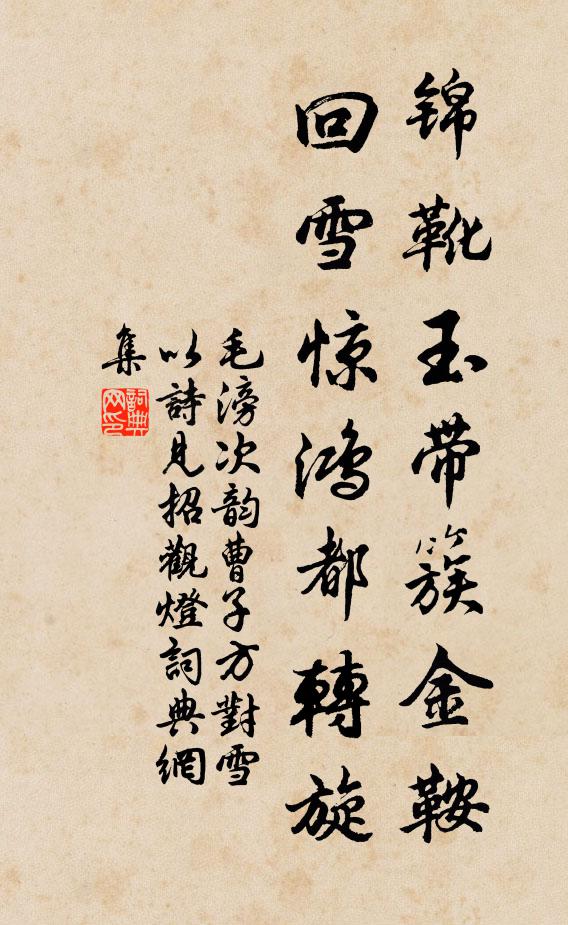 锦靴玉带簇金鞍
回雪惊鸿都轉旋
毛滂次韵曹子方對雪
以詩見招觀燈詞典網
集
詞典
网印